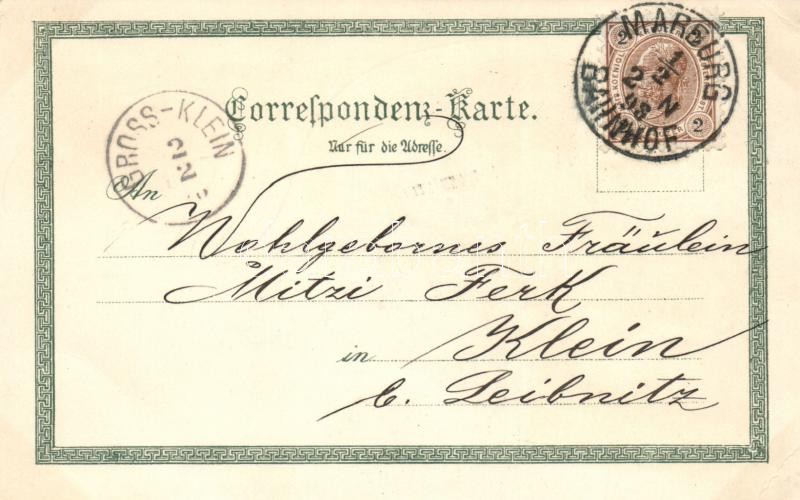 Correspondenz-Karte.
Nur für die Adresse.
An
Wohlgebornes Fräulein
Mitzi Ferk
in Klein
b. Leibnitz
MARBURG
1/2
2 N
98
BAHNHOF
2 2
2
GROSS-KLEIN
2/2